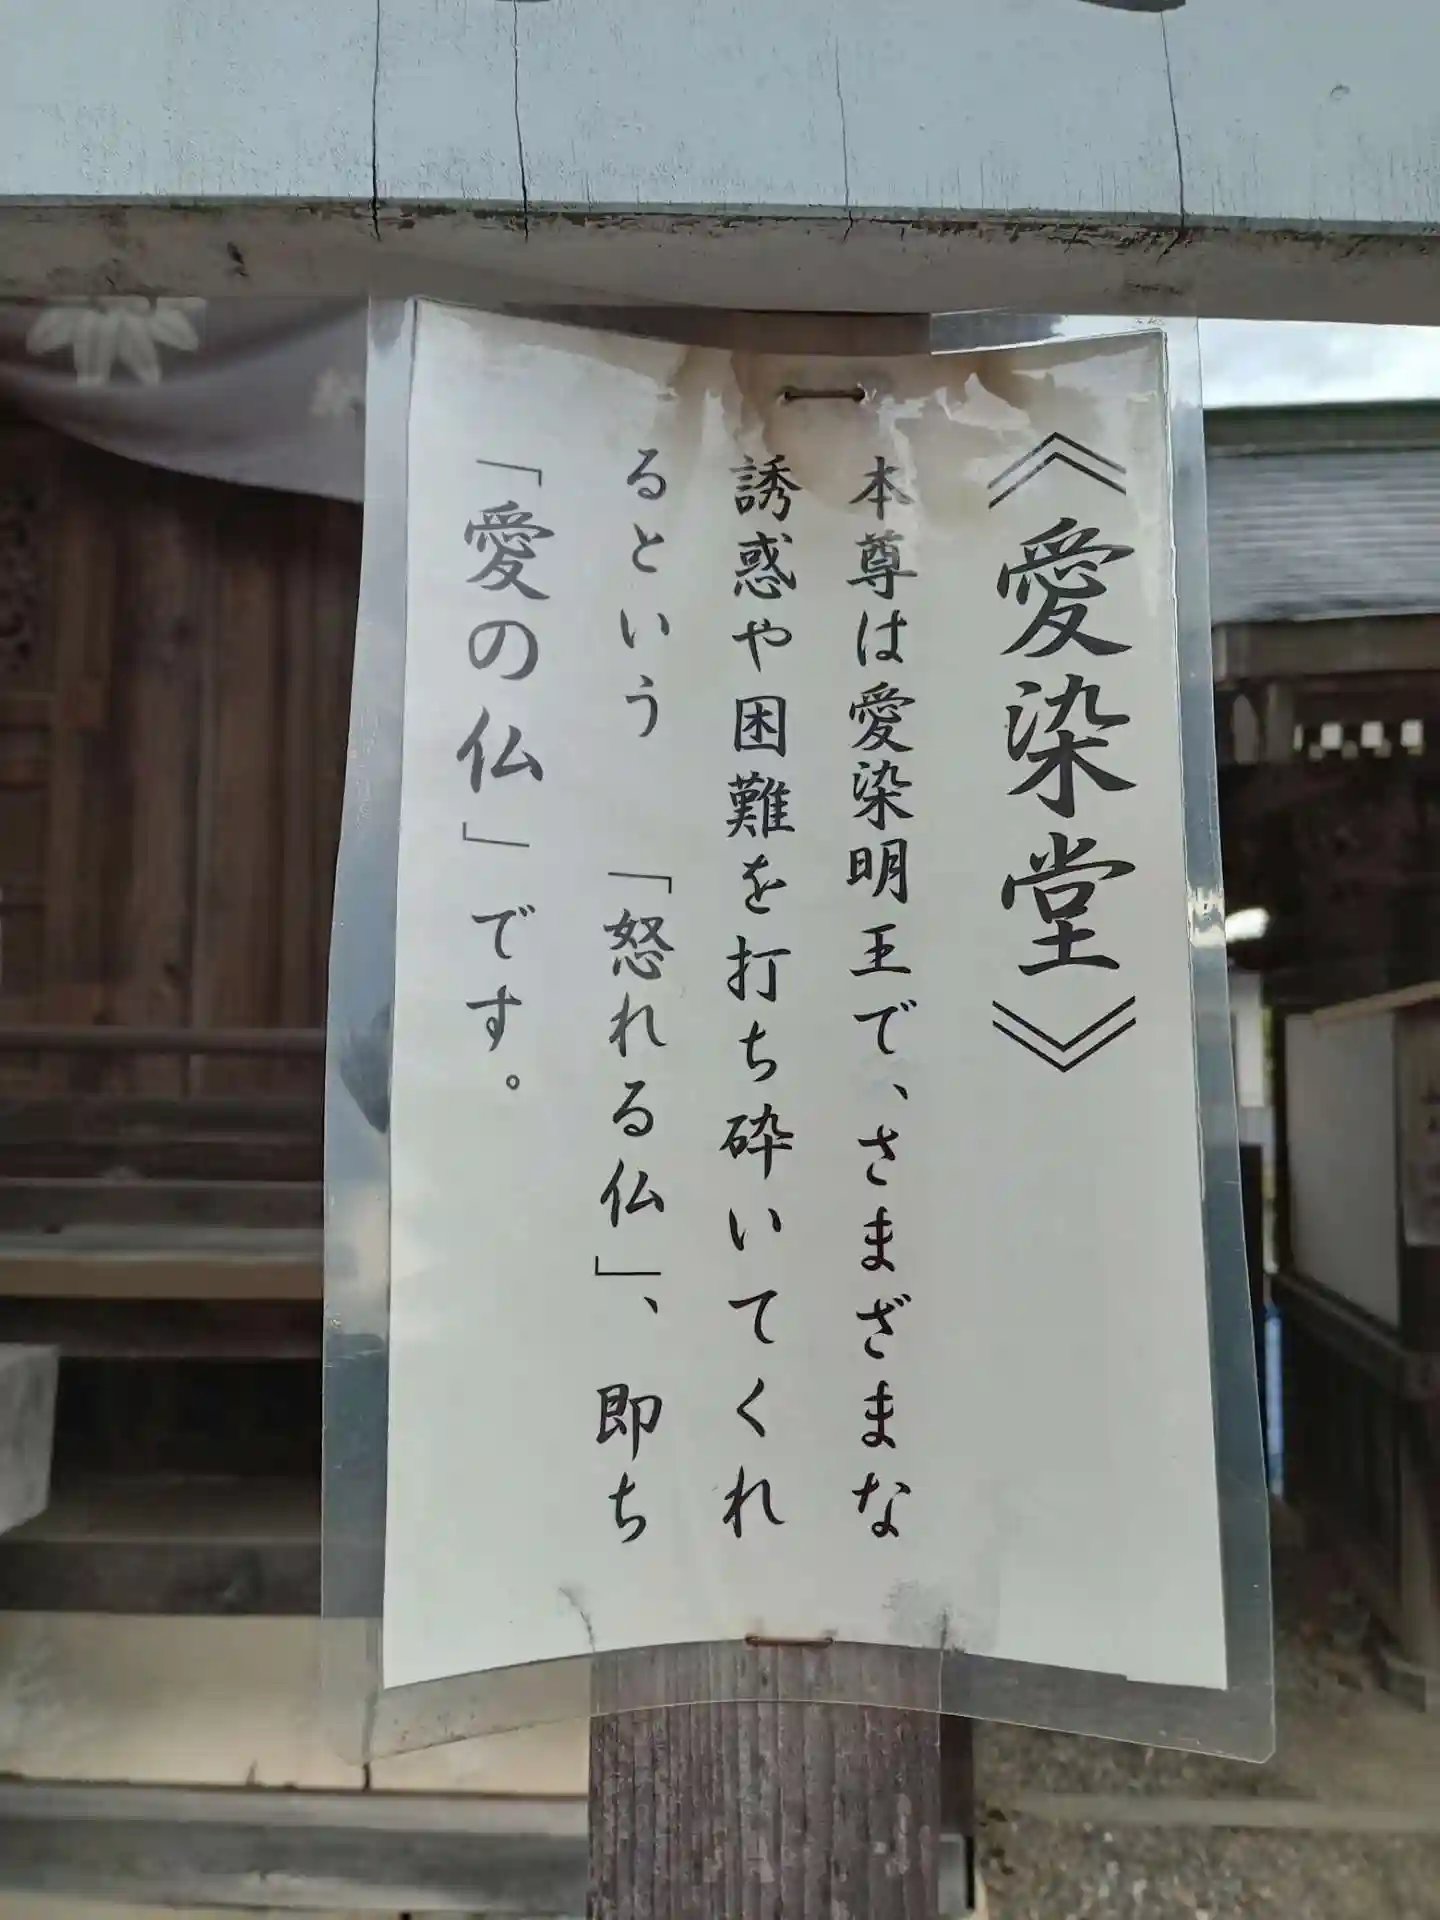 《愛染堂》
本尊は愛染明王で、さまざまな
誘惑や困難を打ち砕いてくれ
るという　「怒れる仏」、即ち
「愛の仏」です。